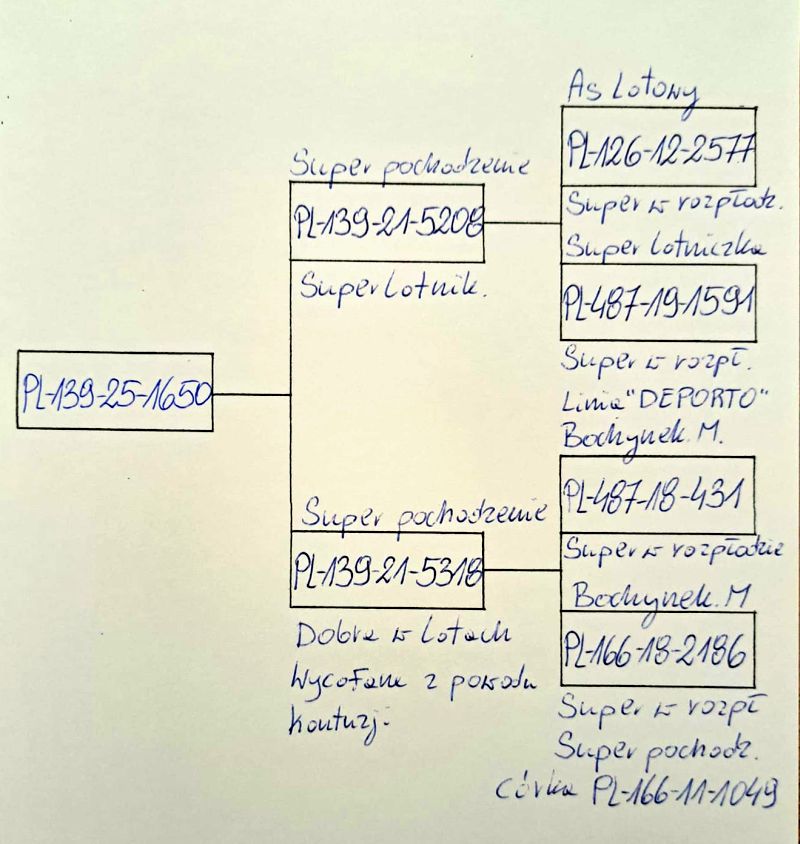 As Lotowy
PL-126-12-2577
Super w rozpłodz.
Super pochodzenie
PL-139-21-5208
Super Lotnik.
Super Lotniczka
PL-487-19-1591
Super w rozpł.
Linia "DEPORTO"
PL-139-25-1650
Bochynek. M.
PL-487-18-431
Super w rozpłodzie
Super pochodzenie
PL-139-21-5318
Dobra w Lotach
Wycofana z powodu
kontuzji.
Bochynek. M
PL-166-18-2186
Super w rozpł
Super pochodz.
córka PL-166-11-1049